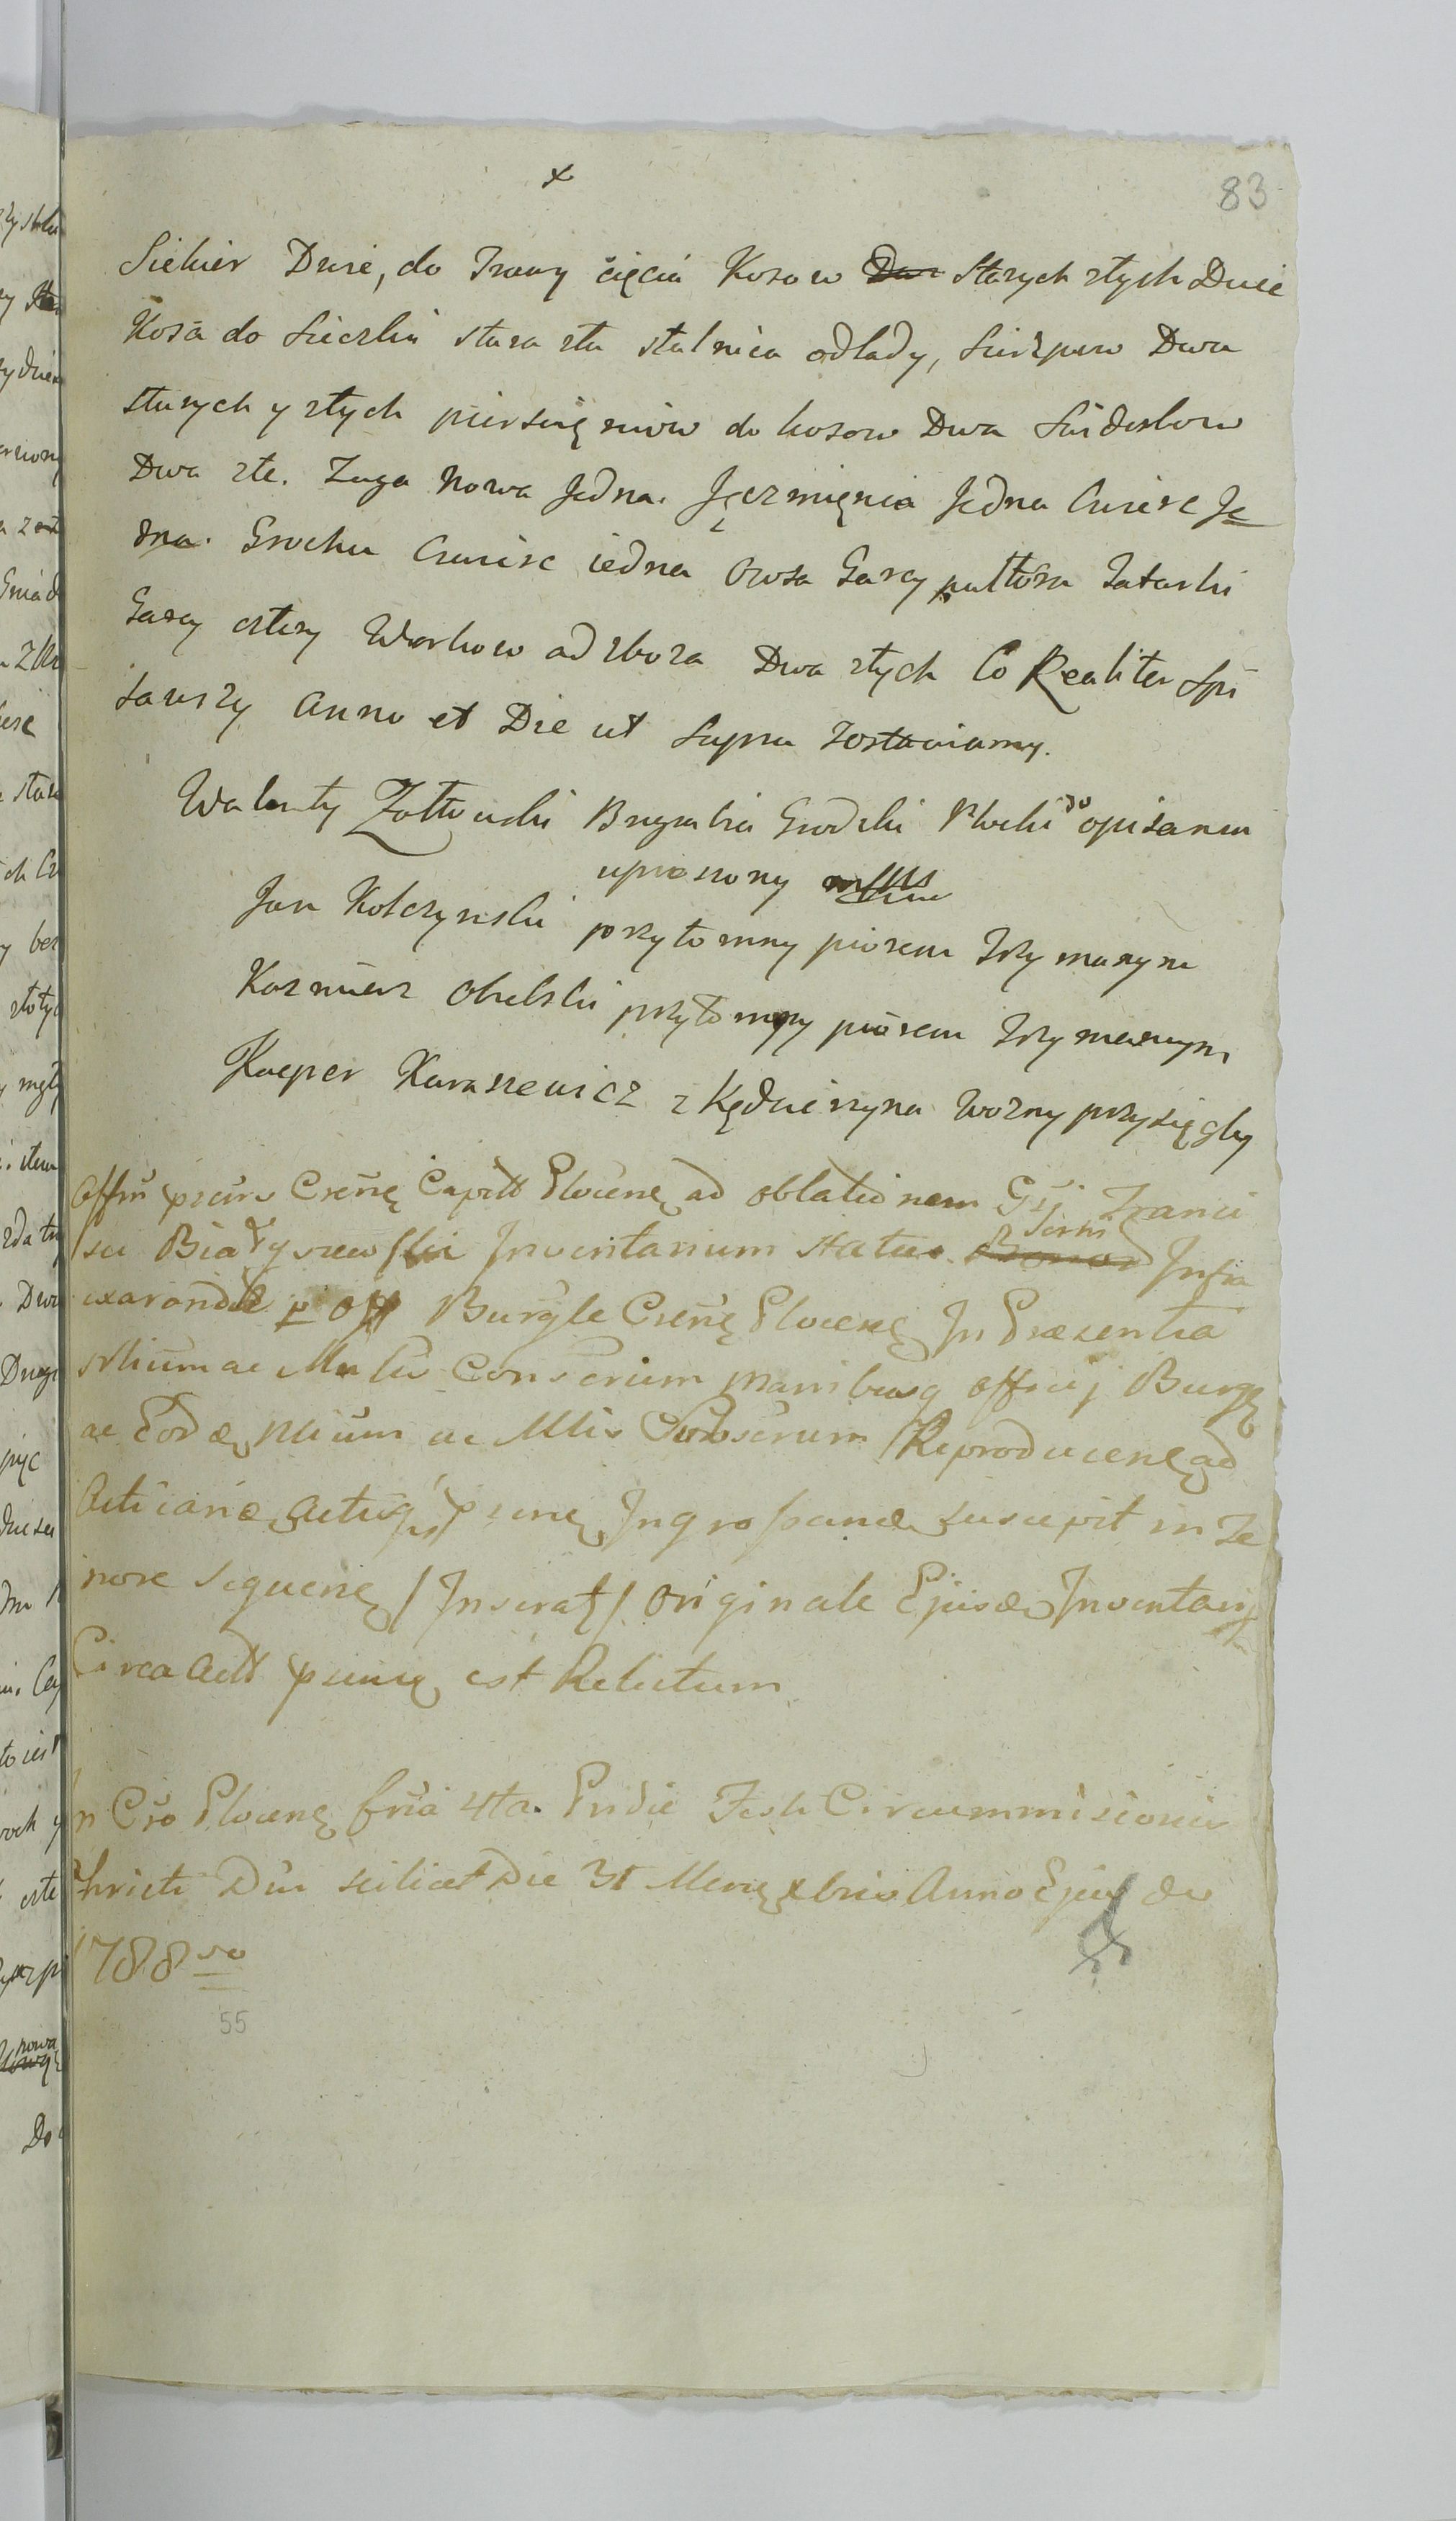 x
83
Siekier Dwie, do Trawy cięcia Kosow Dwi starych złych Dwie
Kosa do Sieczki stara zła stalnica od lady, Sierpow Dwa
starych y złych pierscięniow do kosow Dwa Swiderkow
Dwa złe. Zuga Nowa Jedna. Jęczmięnia Jedna Cwierc Je
dna. Grochu Cwierc iedna Owsa Garcy pułtora Tatarki
Garcy cztery Workow od zboza Dwa złych Co Realiter Spi
sawszy Anno et Die ut Supra zostawiamy.
Walenty Zołtowski Burgrabia Grodzki Płocki do opisania
uproszony mps
Jan Kolczynski przytomny piorem trzymanym
Kazmierz Obelski przytomny piorem trzymanym
Kacper Karaszewicz z Kędzierzyna Wozny przysięgły
Offm pńs Csrenę Capit Plocenę ad oblationem Gsi Franci
sci Białyszewski Inventarium status Bonor Infra
exarandi p Off Burgle Csrenę Plocenę In Præsentia
Nlium ac Mntis Conscrium manibusq officij Burg
ac Eordę Nlium ac Mtis Conscrium Reproducenę ad
Acticanę Actisq psene Ingrossanę suscepit in Te
nore sequenę / Inserat / Originale Ejusdę Inventarij
Circa Actt psenę est Relictum
In Cro Plocenę fria 4ta. Pridie Festi Circummisionis
Christi Dni scilicet Die 31 Menę xbris Anno Ejus de
1788vo
55